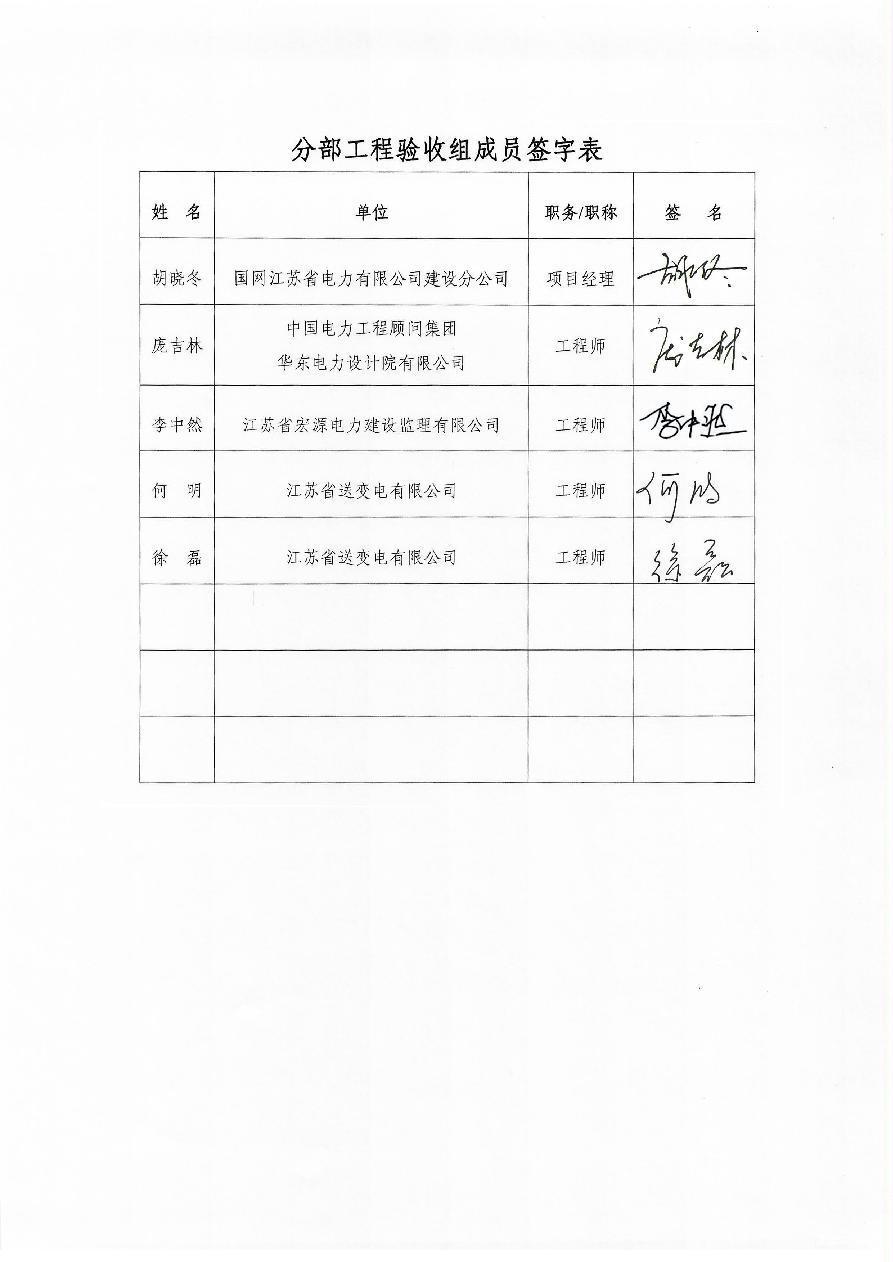 分部工程验收组成员签字表
姓 名 单位 职务/职称 签 名
胡晓冬 国网江苏省电力有限公司建设分公司 项目经理 胡晓冬
庞吉林 中国电力工程顾问集团
华东电力设计院有限公司 工程师 庞吉林
李中然 江苏省宏源电力建设监理有限公司 工程师 李中然
何 明 江苏省送变电有限公司 工程师 何明
徐 磊 江苏省送变电有限公司 工程师 徐磊